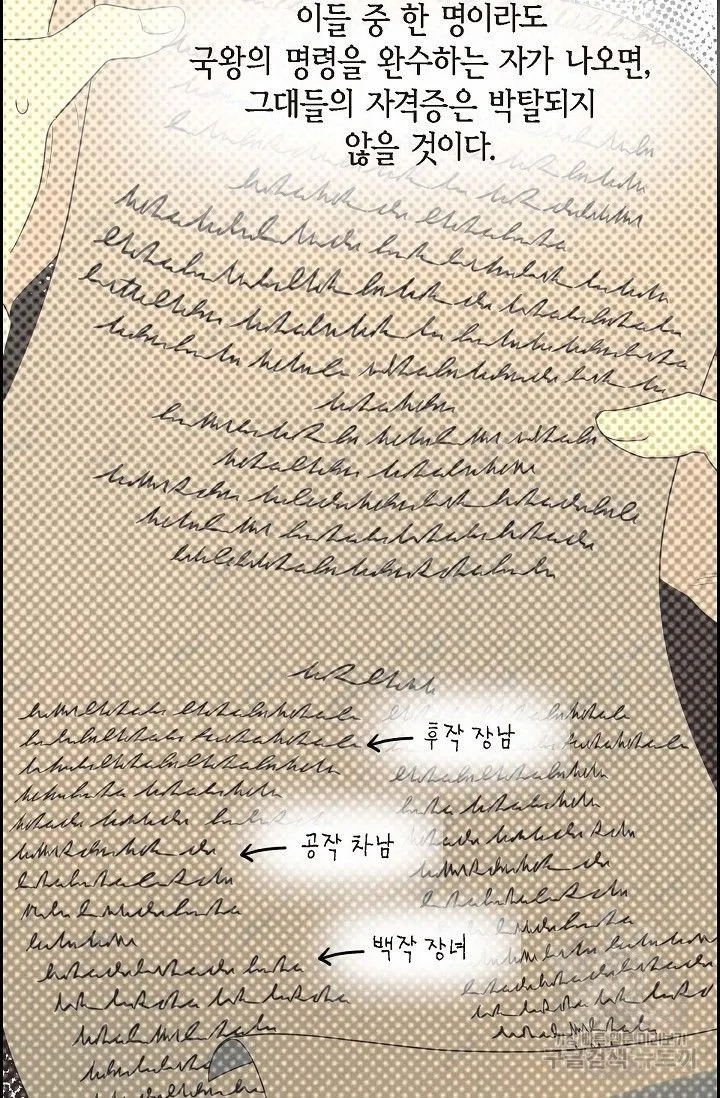 이들 중 한 명이라도
국왕의 명령을 완수하는 자가 나오면,
그대들의 자격증은 박탈되지
않을 것이다.
후작 장남
공작 차남
백작 장녀
구글검색 뉴토끼